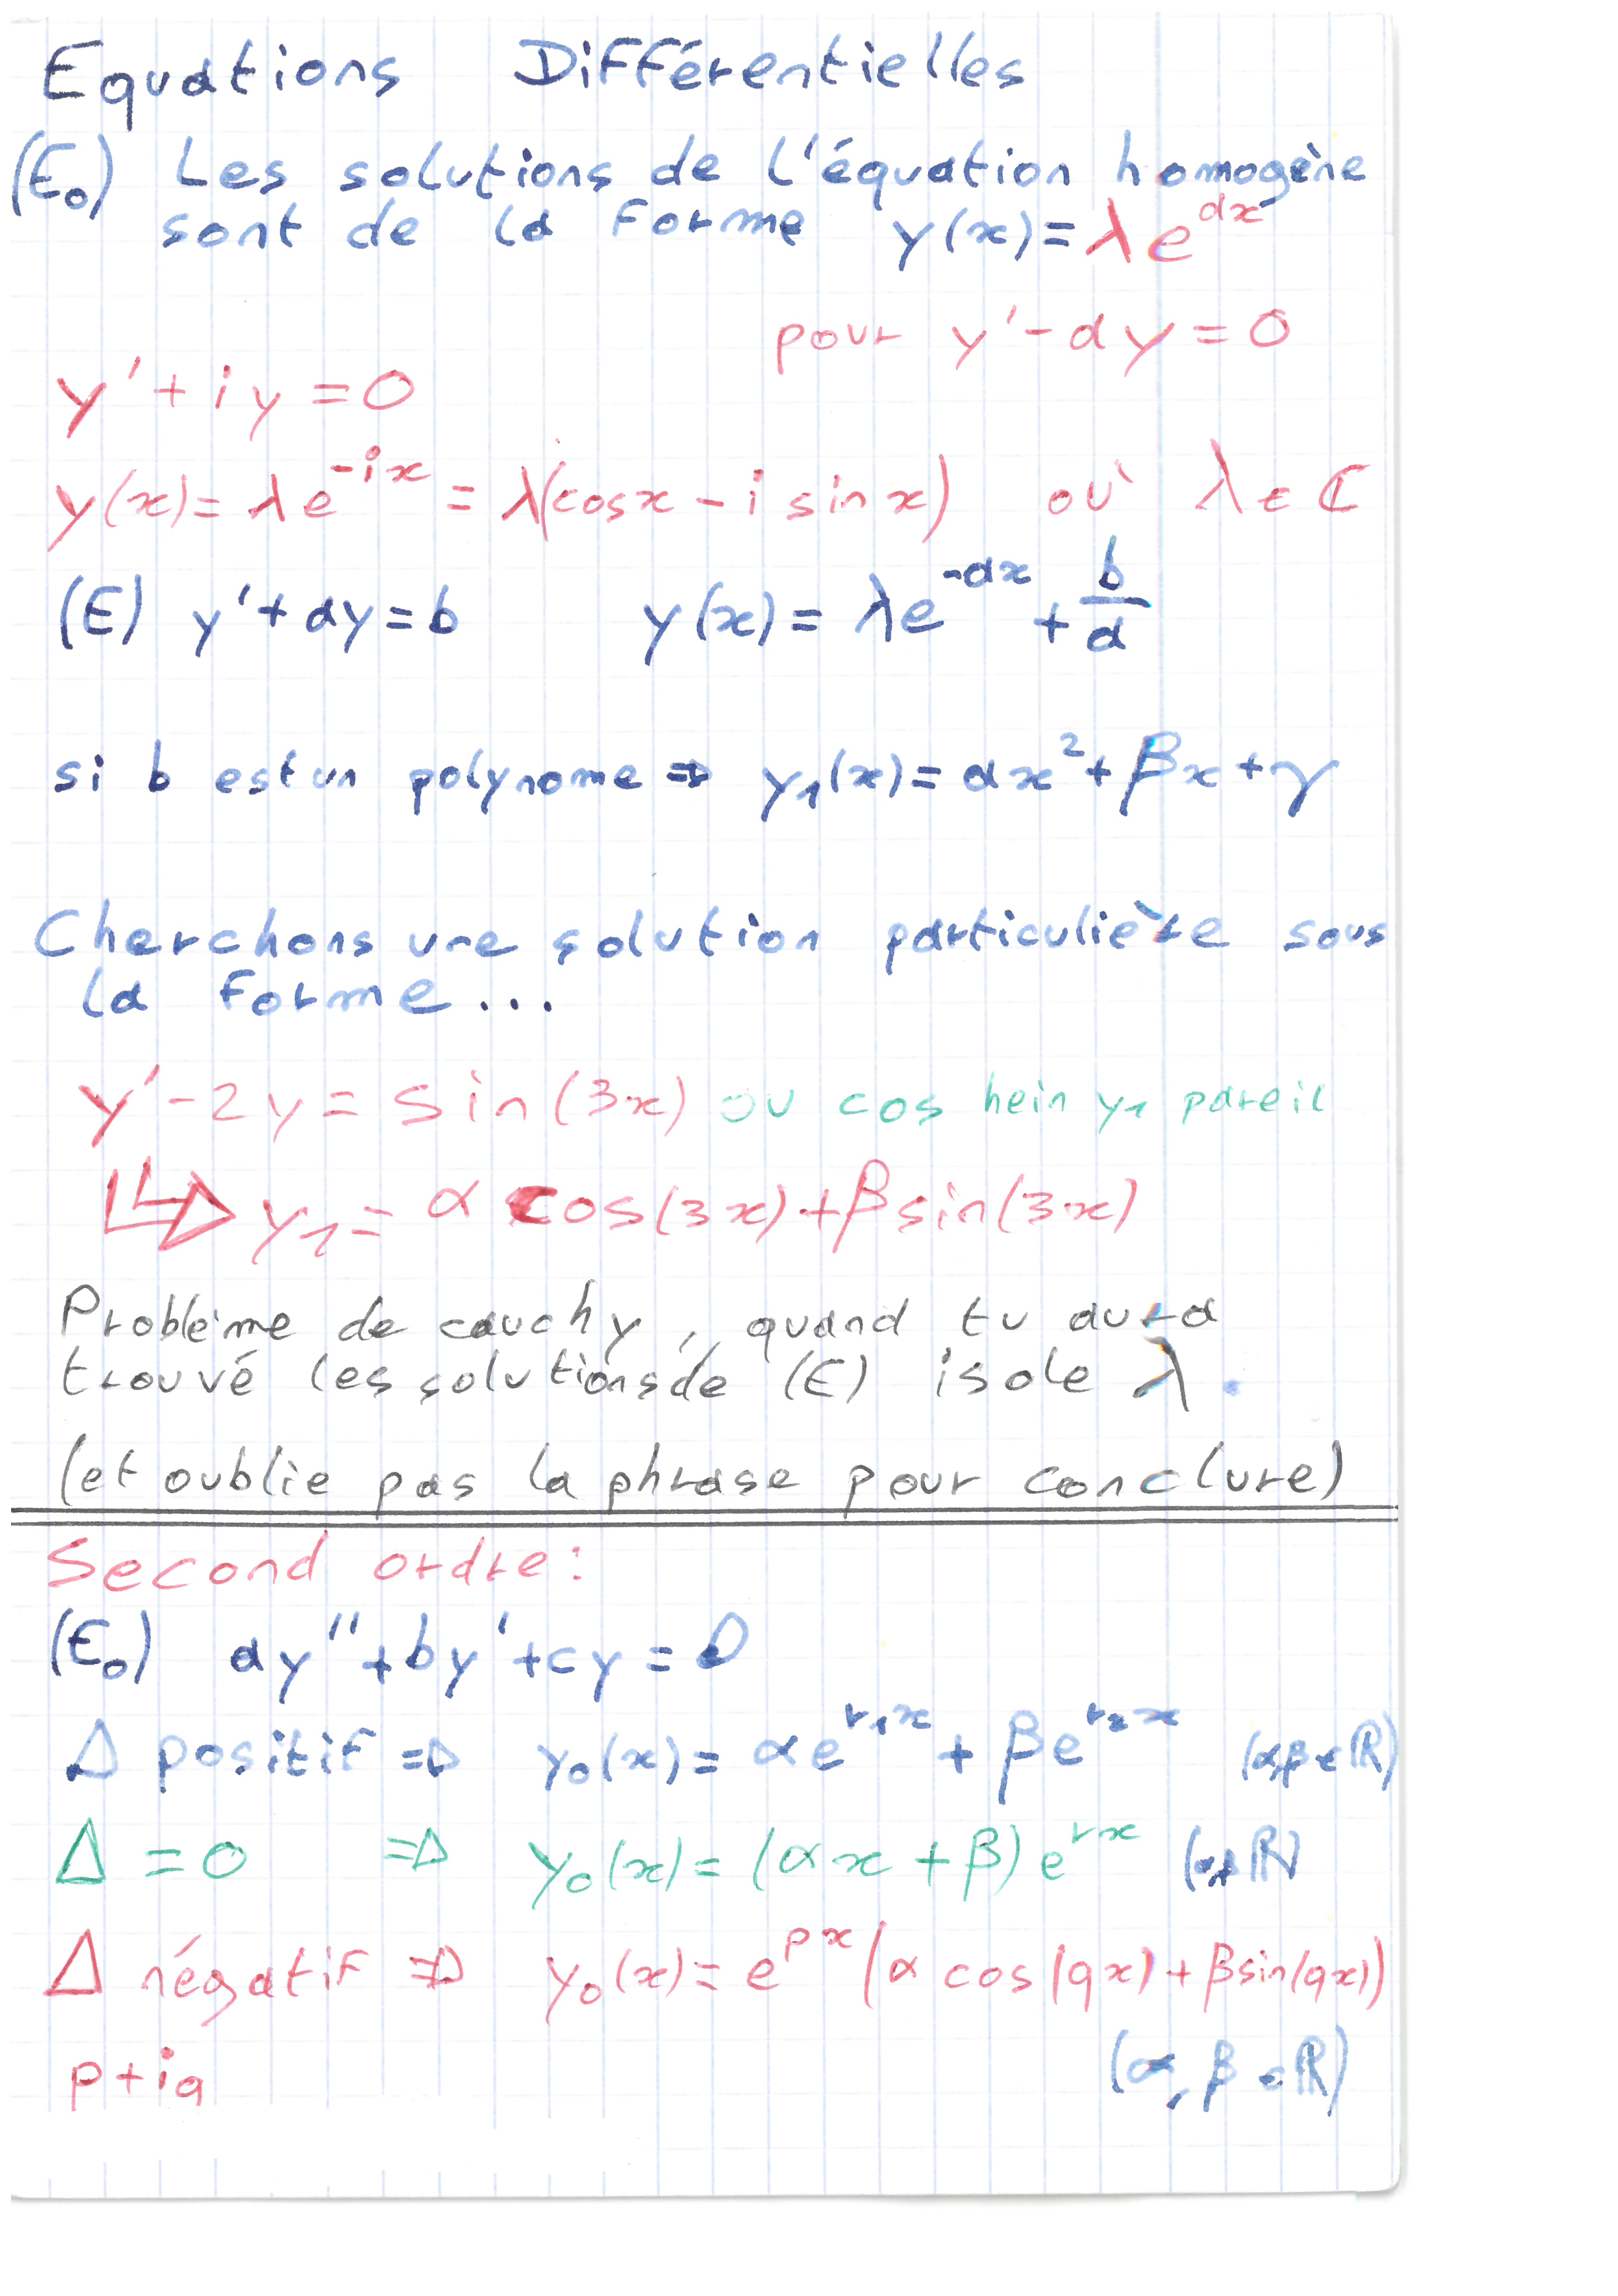 Equations Différentielles
(E₀) Les solutions de l'équation homogène
sont de la forme y(x) = λe^{ax}
pour y' - ay = 0
y' + iy = 0
y(x) = λe^{-ix} = λ(cosx - i sin x) où λ ∈ ℂ
(E) y' + ay = b y(x) = λe^{-ax} + b/a
si b est un polynome ⇒ y₁(x) = αx² + βx + γ
Cherchons une solution particulière sous
la forme...
y' - 2y = sin(3x) ou cos hein y₁ pareil
↳ y₁ = α cos(3x) + β sin(3x)
Problème de cauchy, quand tu aura
trouvé les solutions de (E) isole λ.
(et oublie pas la phrase pour conclure)
Second ordre:
(E₀) ay'' + by' + cy = 0
Δ positif ⇒ y₀(x) = αe^{r₁x} + βe^{r₂x} (α,β ∈ ℝ)
Δ = 0 ⇒ y₀(x) = (αx + β)e^{rx} ℝ)
Δ négatif ⇒ y₀(x) = e^{px}(α cos(qx) + βsin(qx))
p+iq (α, β ∈ ℝ)